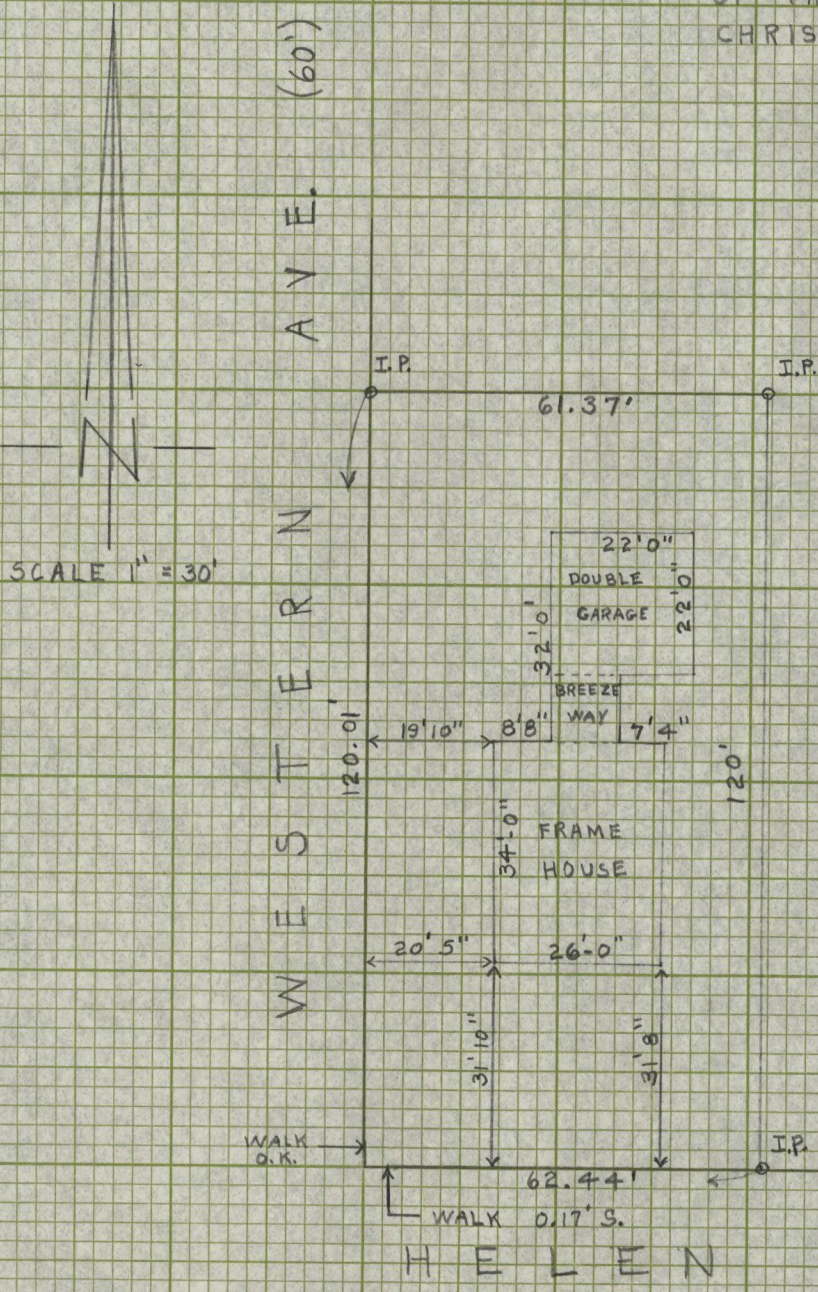 CHRIS
WESTERN AVE. (60')
I.P.
I.P.
61.37'
SCALE 1" = 30'
22'0"
DOUBLE
GARAGE
22'0"
32'0'
BREEZE
WAY
19'10"
8'8"
7'4"
120.01'
120'
34'-0"
FRAME
HOUSE
20'5"
26'-0"
31'10"
31'8"
WALK
O.K.
I.P.
62.44'
WALK 0.17' S.
HELEN
N